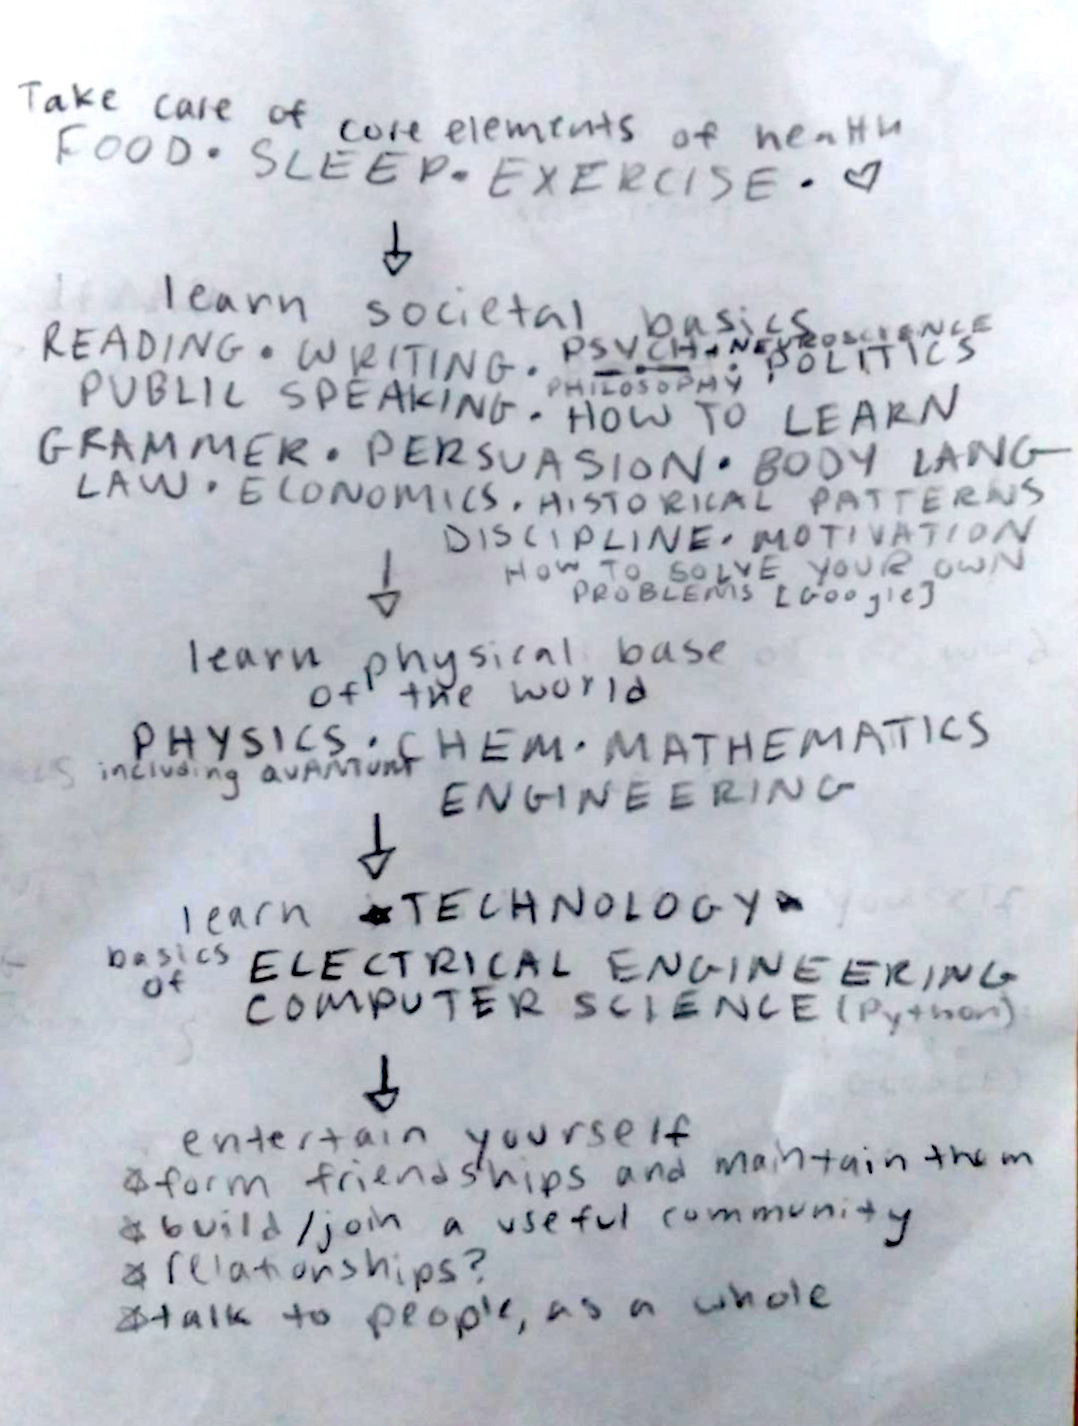 Take care of core elements of health
FOOD • SLEEP • EXERCISE • ♡
↓
learn societal basics
READING • WRITING • PSYCH + NEUROSCIENCE • POLITICS
PHILOSOPHY
PUBLIC SPEAKING • HOW TO LEARN
GRAMMER • PERSUASION • BODY LANG
LAW • ECONOMICS • HISTORICAL PATTERNS
DISCIPLINE • MOTIVATION
HOW TO SOLVE YOUR OWN
PROBLEMS [Google]
↓
learn physical base
of the world
PHYSICS • CHEM • MATHEMATICS
including QUANTUM
ENGINEERING
↓
learn ★TECHNOLOGY★
basics of ELECTRICAL ENGINEERING
COMPUTER SCIENCE (Python)
↓
entertain yourself
☆ form friendships and maintain them
☆ build/join a useful community
☆ relationships?
☆ talk to people, as a whole